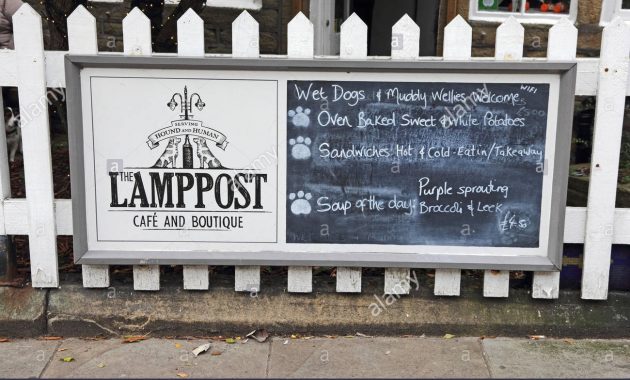 SERVING
HOUND AND HUMAN
THE LAMPPOST
CAFÉ AND BOUTIQUE
Wet Dogs & Muddy Wellies Welcome WIFI
Oven Baked Sweet & White Potatoes
Sandwiches Hot & Cold - Eat in / Takeaway
Soup of the day: Purple sprouting
Broccoli & Leek
£4.50
alamy